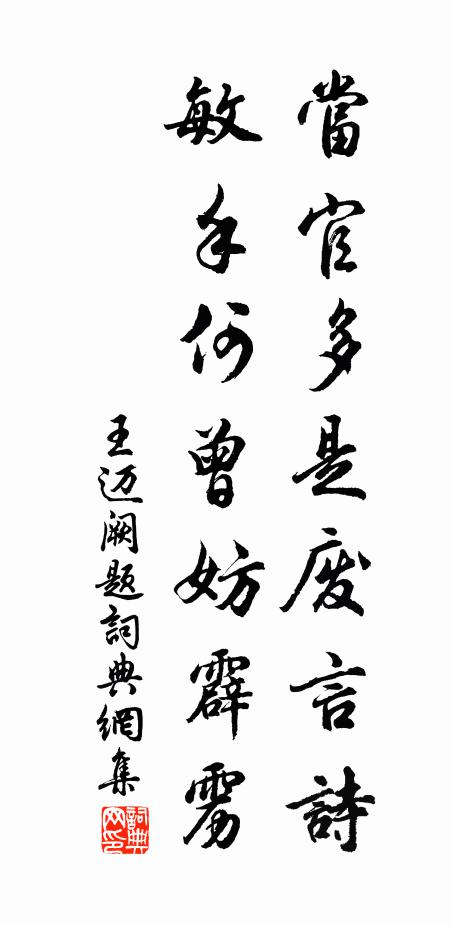 當官多是废言詩
敏手何曾妨霹雳
王迈阙题詞典網集
詞典网印